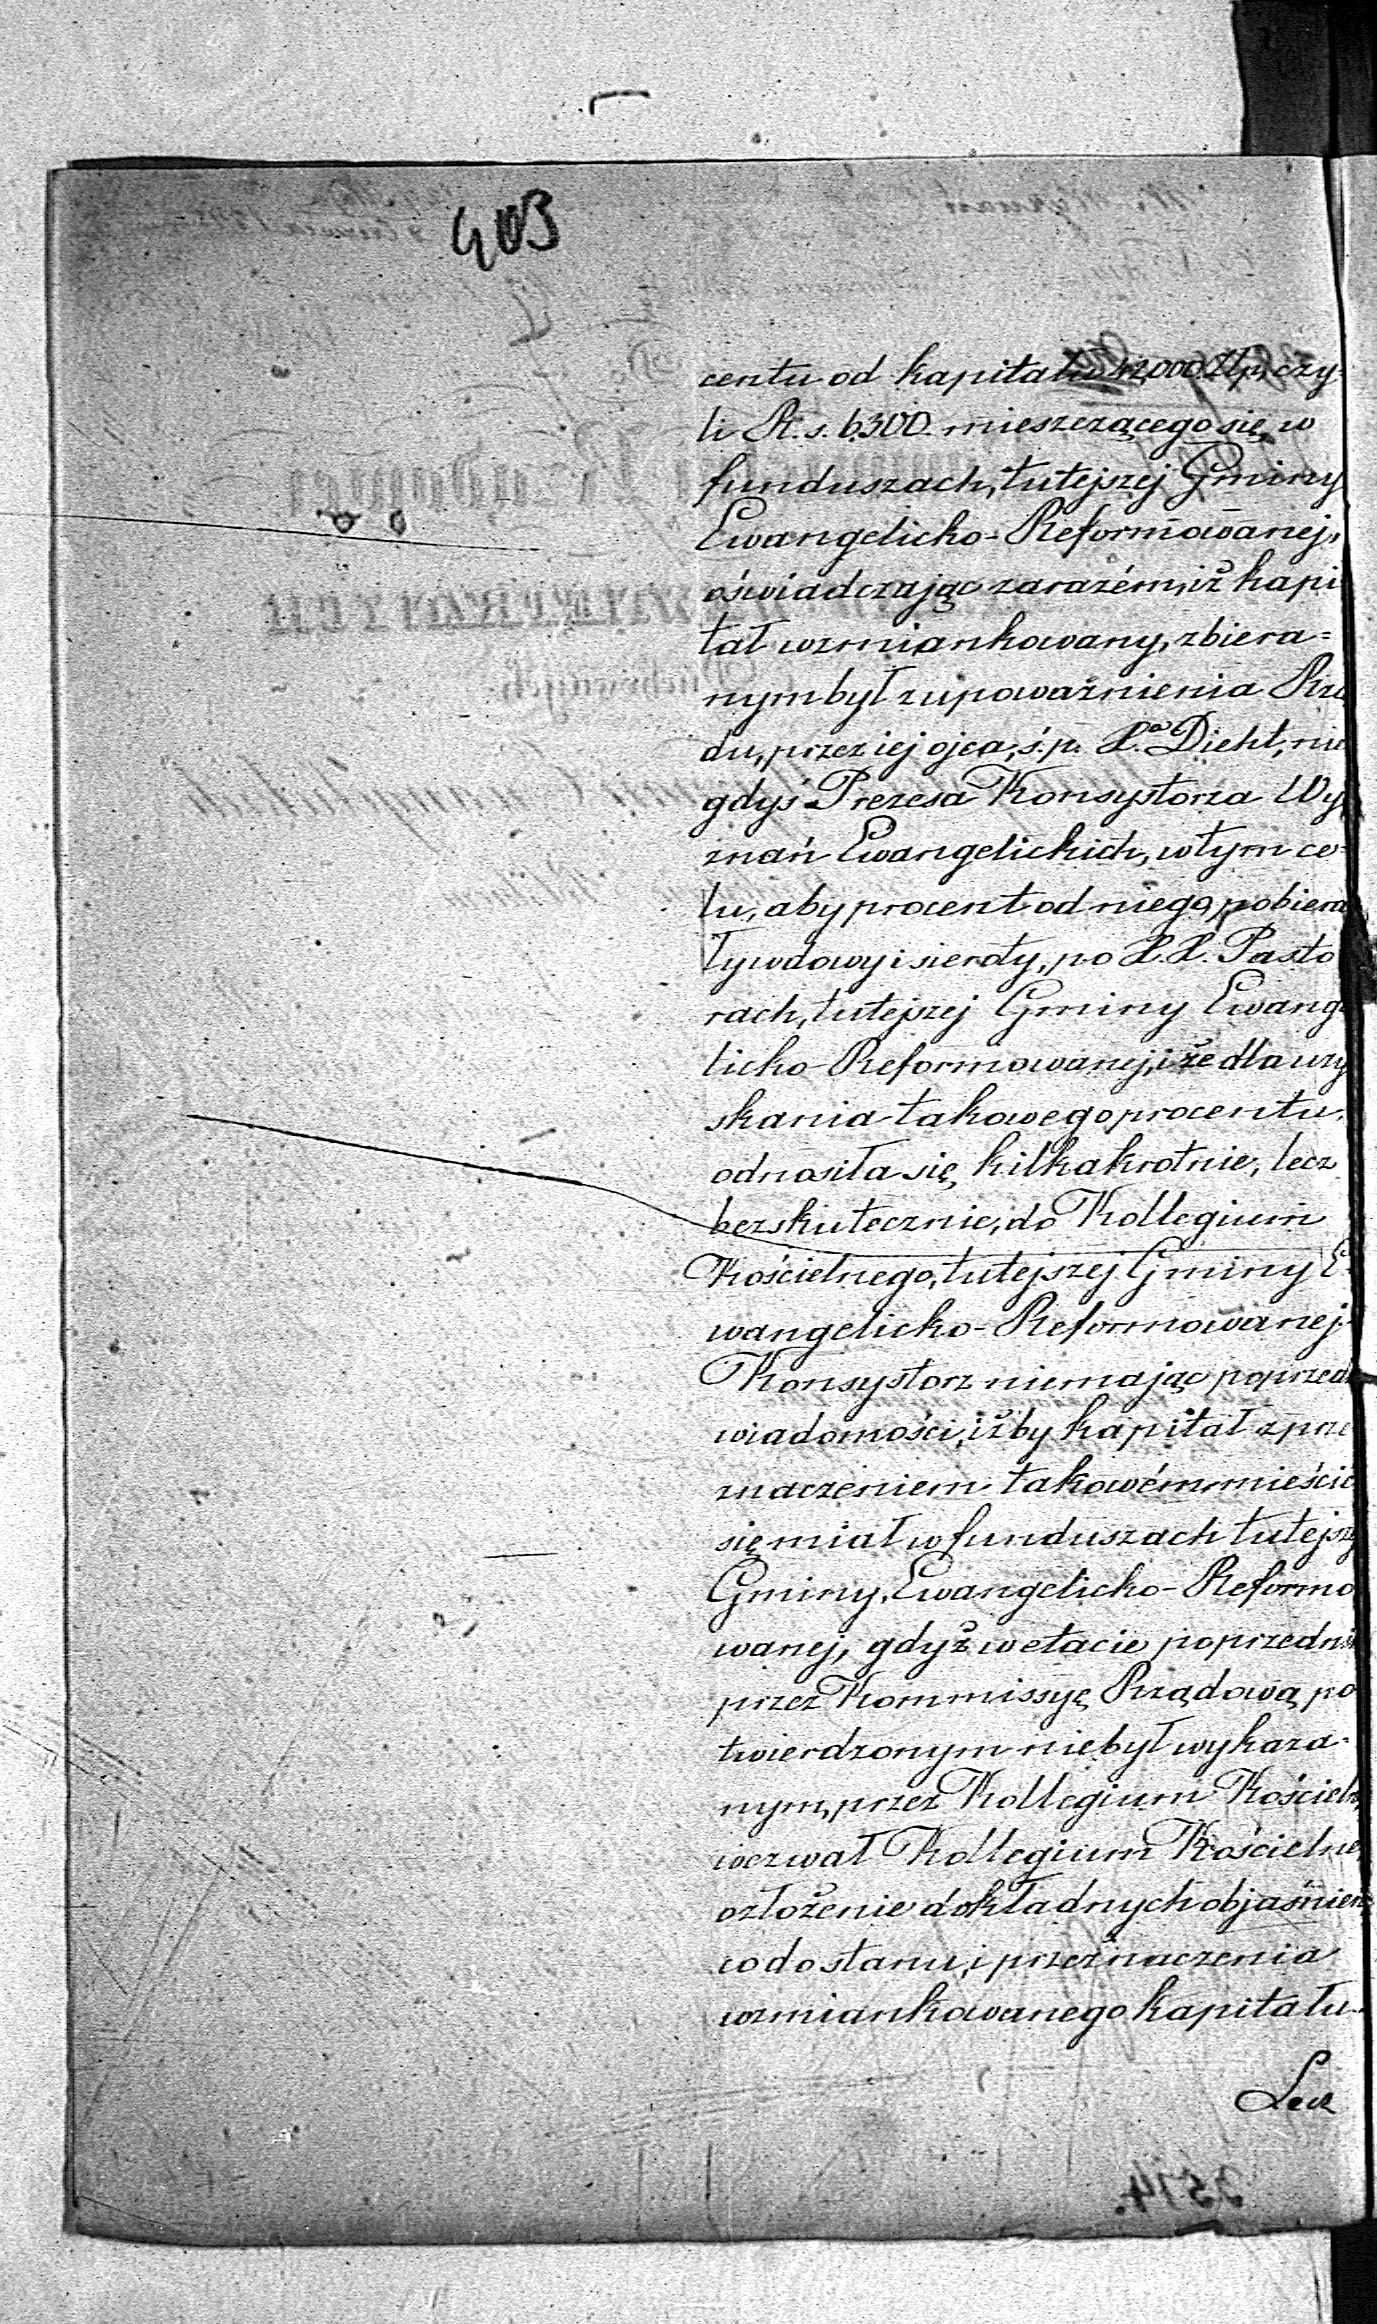 403
centu od kapitału 42,000 Złp, czy
li R. s. 6300. mieszczącego się w
funduszach, tutejszej Gminy
Ewangelicko-Reformowanej,
oświadczając zarazém, iż kapi
tał wzmiankowany, zbiera=
nym był z upoważnienia Rzą
du, przez iej ojca, ś. p. X.a Diehl, nie
gdyś Prezesa Konsystorza Wy
znań Ewangelickich, w tym ce=
lu, aby procent od niego, pobiera
ły wdowy i sieroty, po X.X. Pasto
rach, tutejszej Gminy Ewange
licko-Reformowanej, i że dla uzy
skania takowego procentu,
odnosiła się kilkakrotnie, lecz
bezskutecznie, do Kollegium
Kościelnego, tutejszej Gminy E=
wangelicko-Reformowanej.
Konsystorz niemając poprzed
wiadomości, iżby kapitał z prze
znaczeniem takowém mieścić
się miał w funduszach tutejszej
Gminy, Ewangelicko-Reformo
wanej, gdyż w etacie poprzednio
przez Kommissyę Rządową po
twierdzonym nie był wykaza-
nym, przez Kollegium Kościelne,
wezwał Kollegium Kościelne,
o złożenie dokładnych objaśnień
co do stanu, i przeznaczenia
wzmiankowanego kapitału.
Lecz